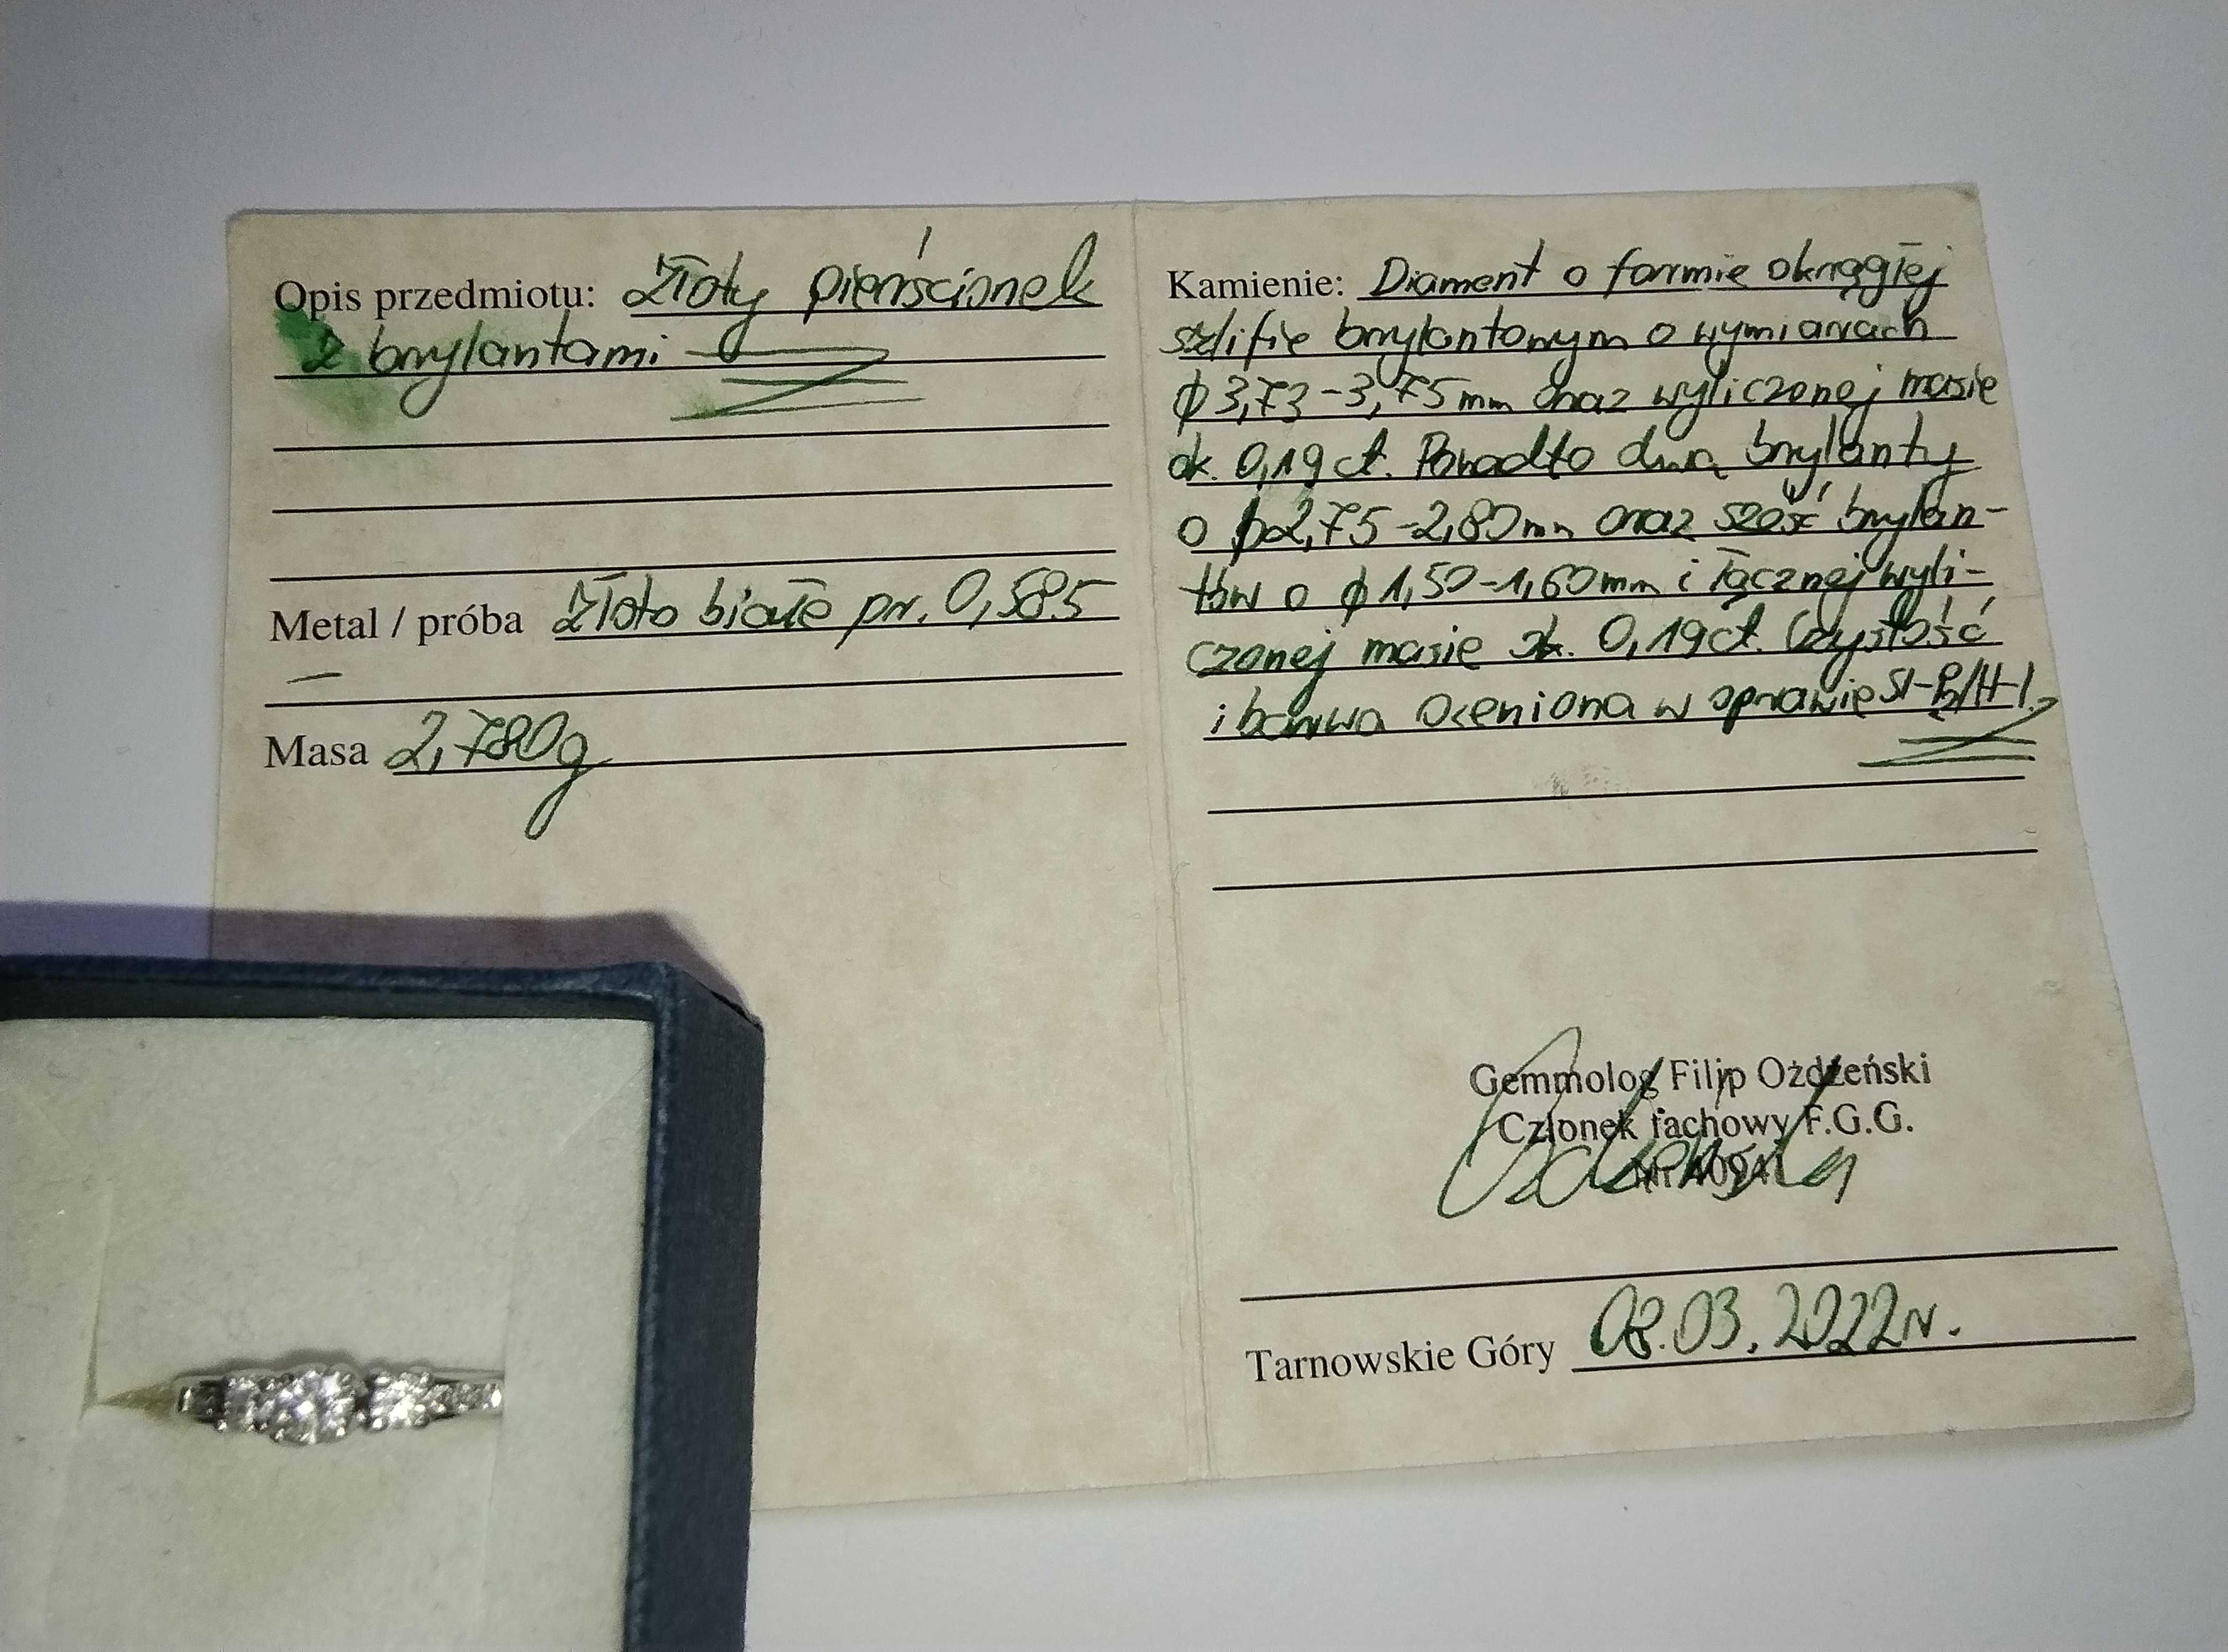 Opis przedmiotu: Złoty pierścionek
z brylantami
Metal / próba Złoto białe pr. 0,585
—
Masa 2,780g
Kamienie: Diament o formie okrągłej
szlifie brylantowym o wymiarach
ϕ 3,73-3,75mm oraz wyliczonej masie
ok. 0,19ct. Ponadto dwa brylanty
o ϕ2,75-2,80mm oraz sześć brylan-
tów o ϕ 1,50-1,60mm i łącznej wyli-
czonej masie ok. 0,19ct. Czystość
i barwa oceniona w oprawie SI-P₂/H-I.
Gemmolog Filip Ożdżeński
Członek fachowy F.G.G.
Tarnowskie Góry 08.03.2022r.